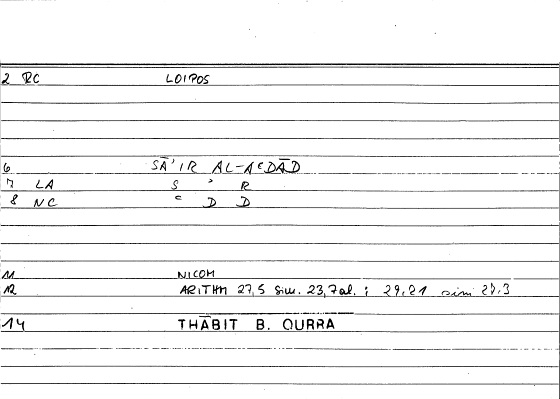 2 RC LOIPOS
6 SĀ'IR AL-AᶜDĀD
7 LA S ' R
8 NC ᶜ D D
11 NICOM
12 ARITHM 27,5 sim. 23,7 al. ; 29,21 sim 27,3
14 THĀBIT B. QURRA